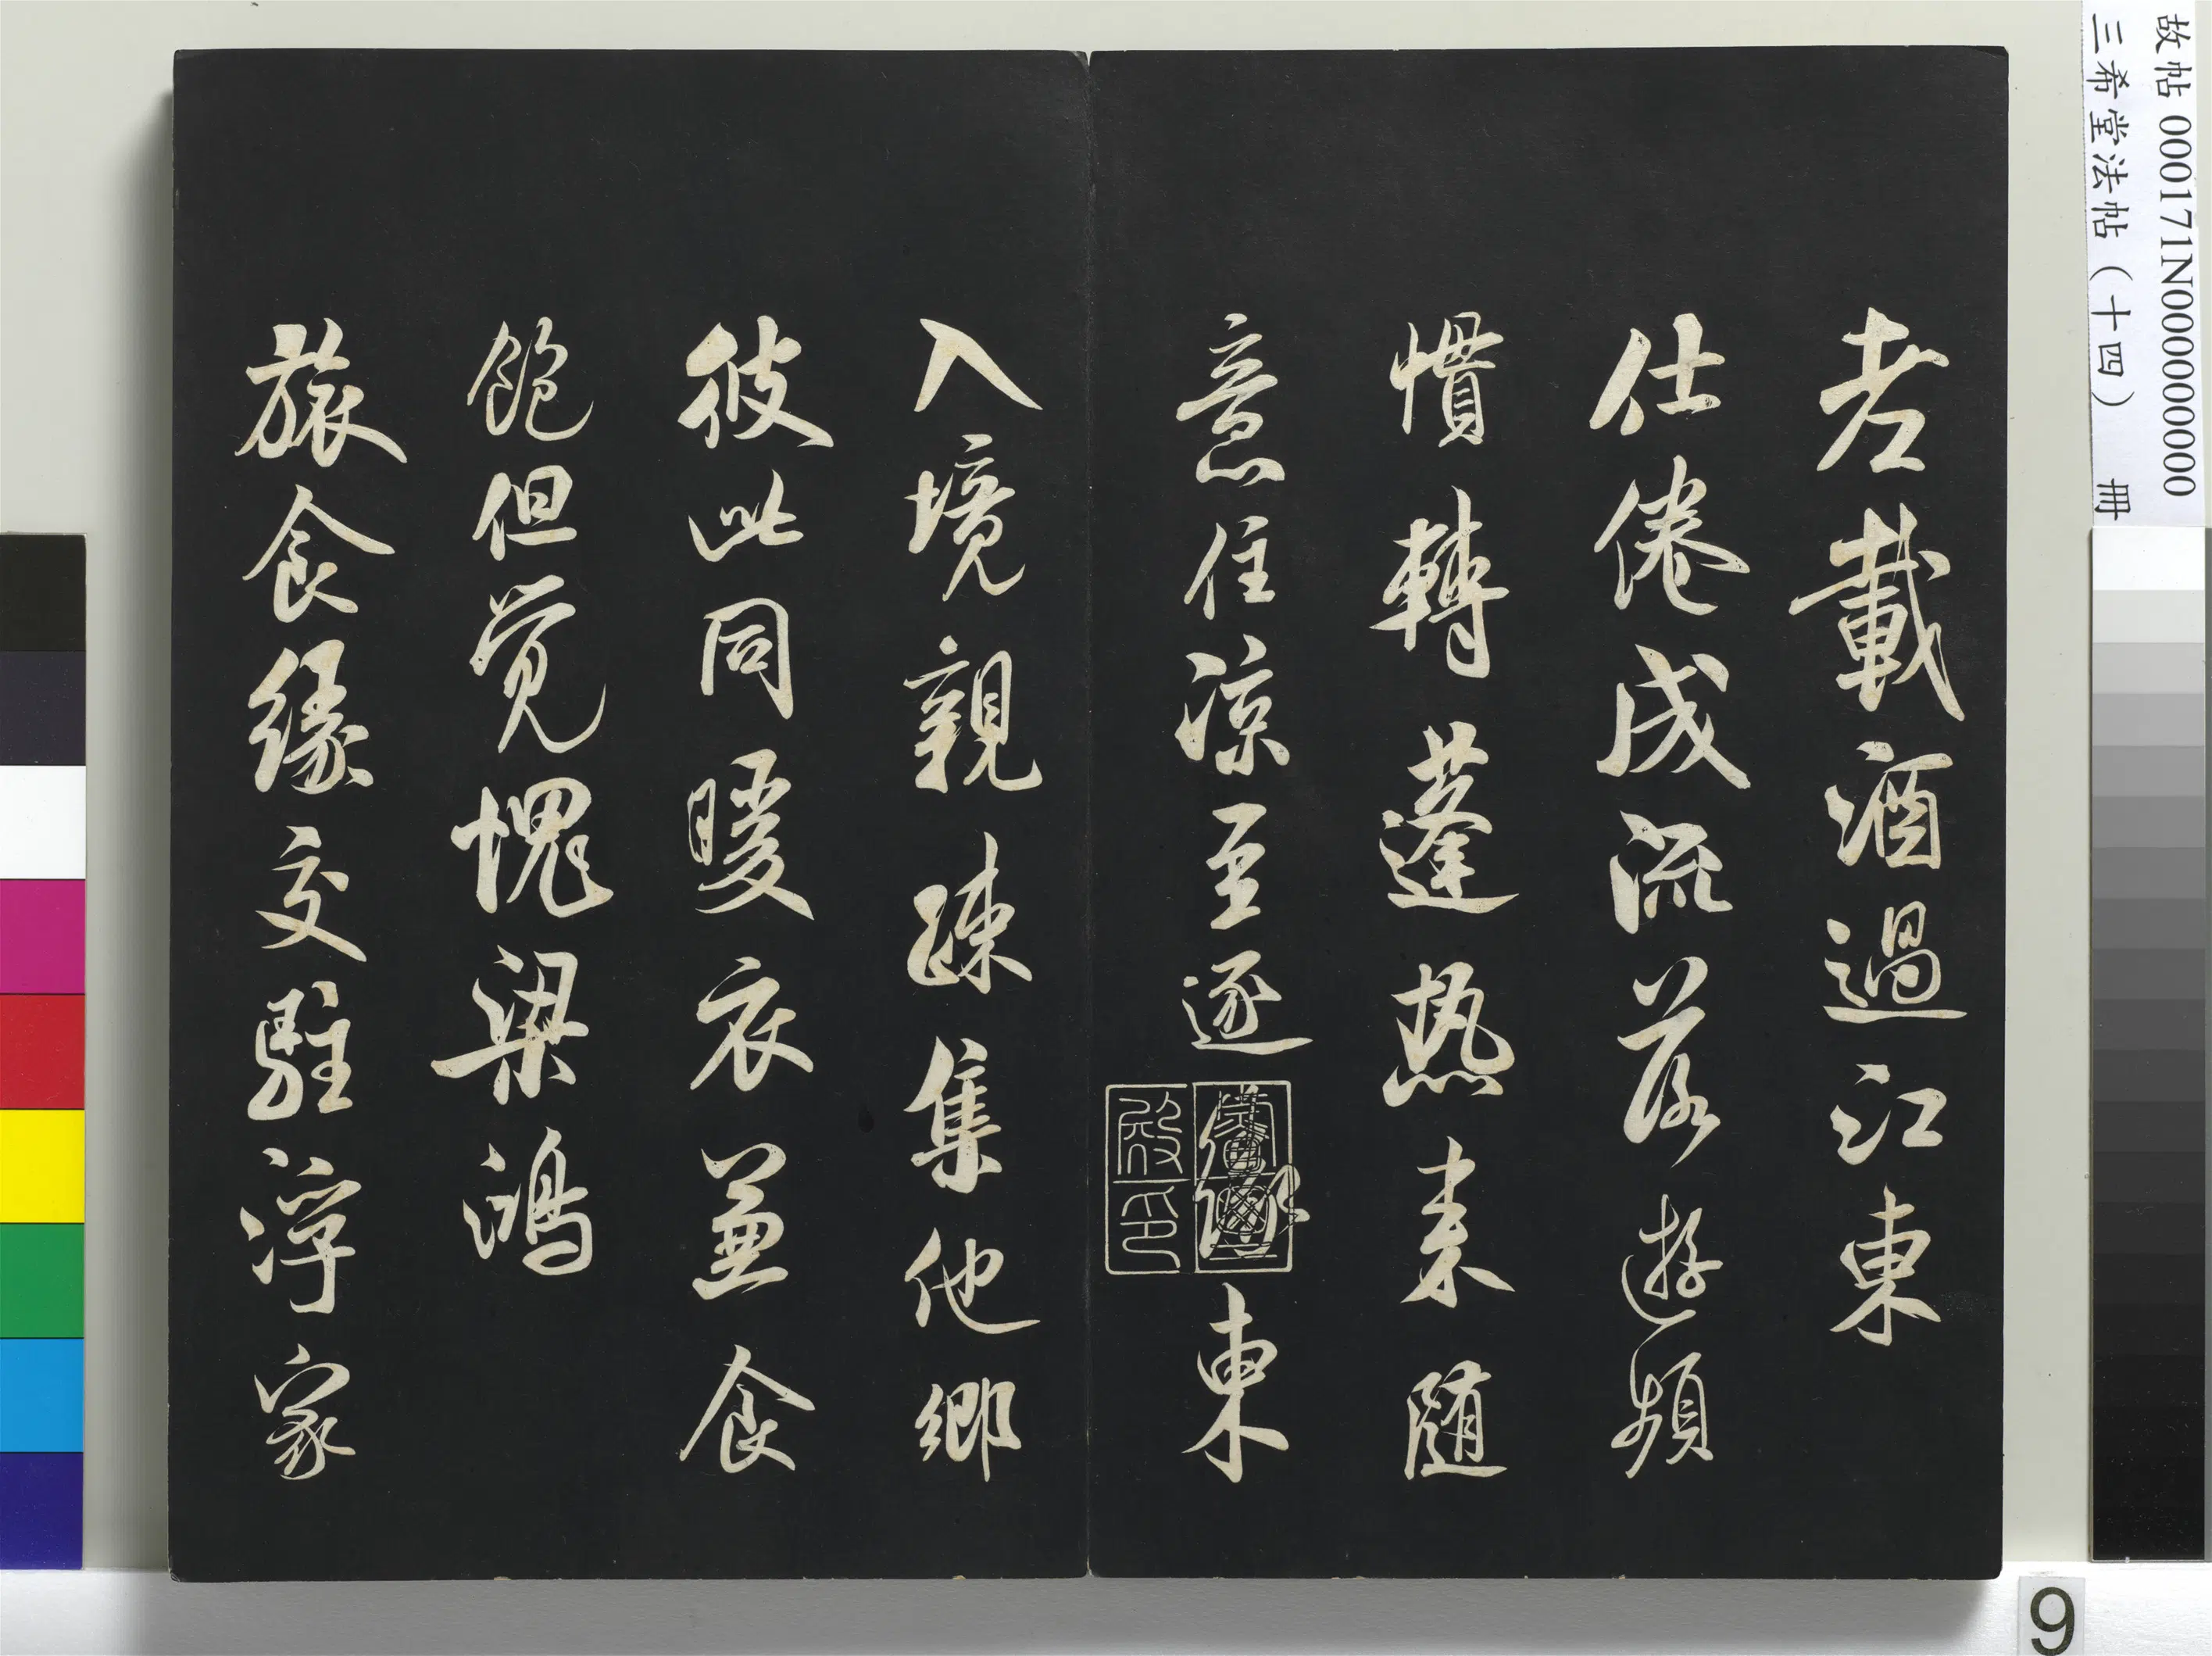 故帖 000171N000000000
三希堂法帖（十四） 冊
老載酒過江東
仕倦成流落遊頻
慣轉蓬热来随
意住涼至逐東
入境親疎集他郷
彼此同暖衣兼食
飽但覺愧梁鴻
旅食緣交駐浮家
9